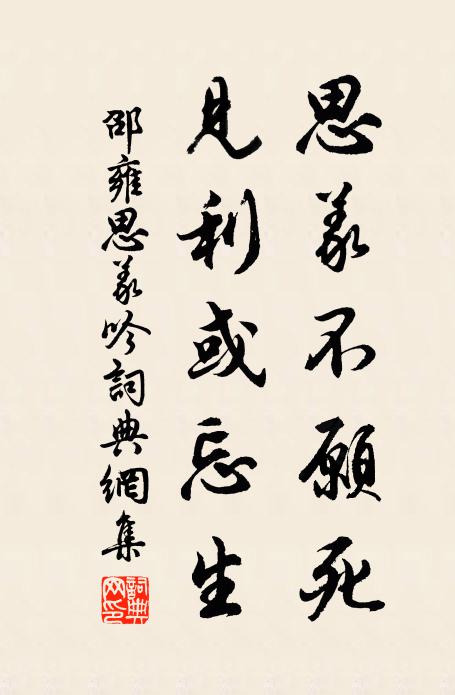 思義不願死
見利或忘生
邵雍思義吟詞典網集
詞典網印